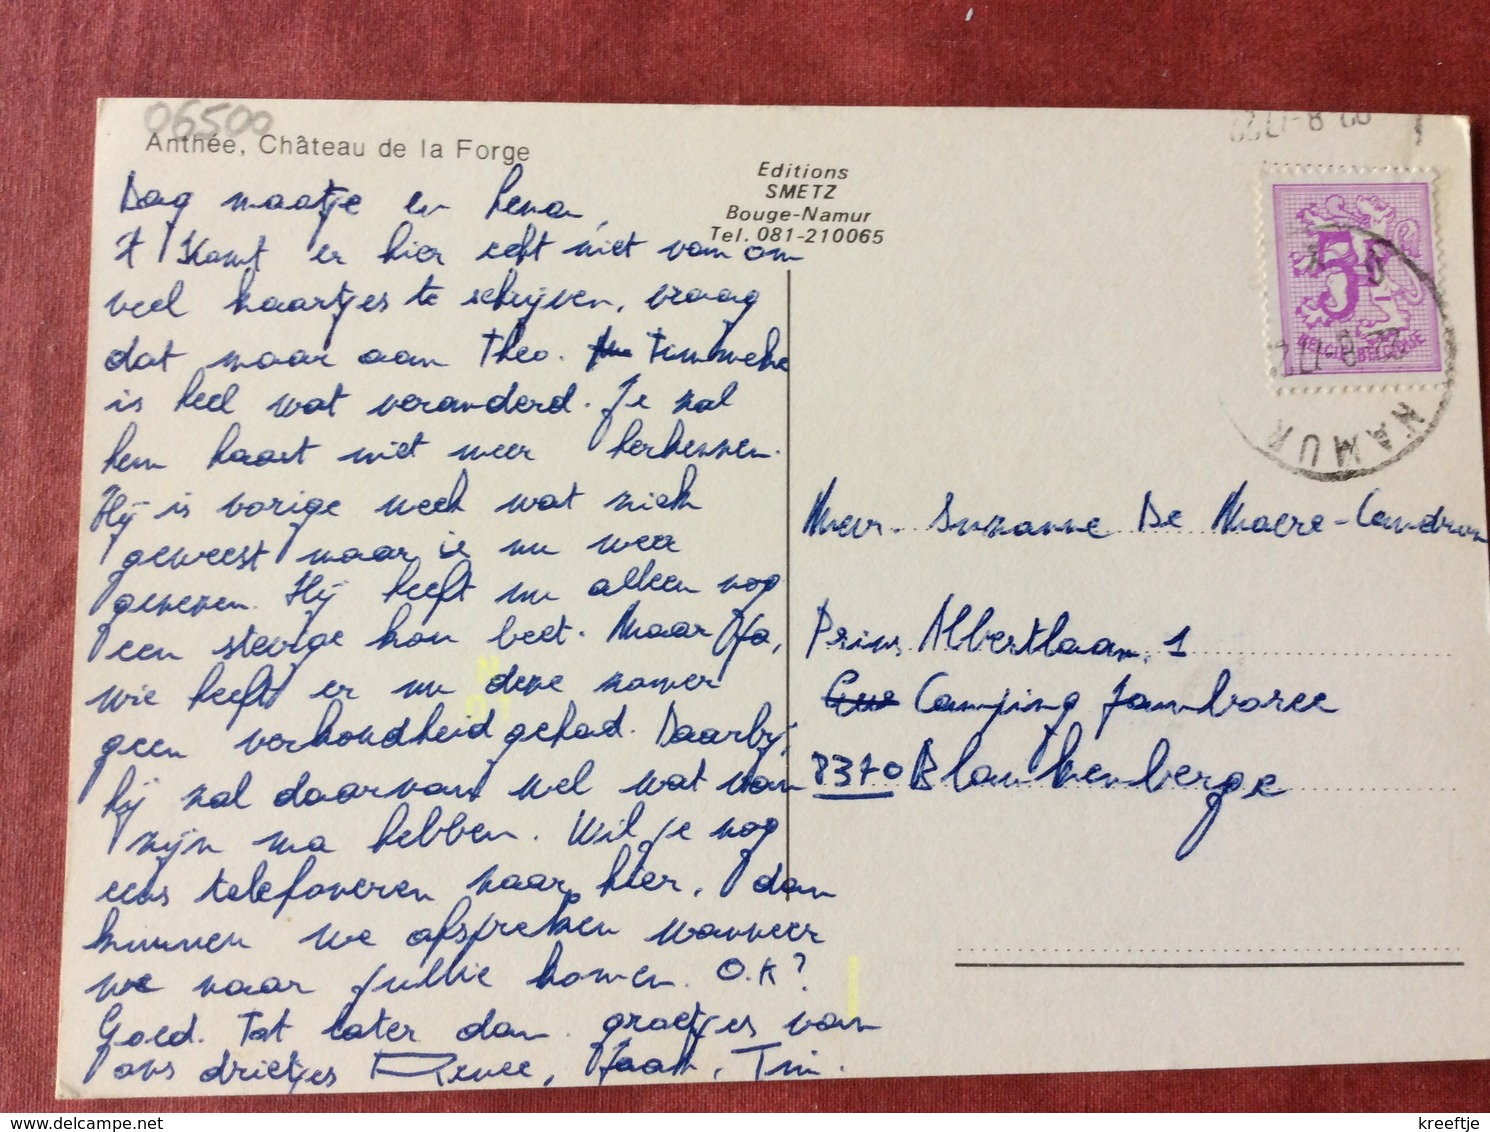 06500
Anthée, Château de la Forge
Editions
SMETZ
Bouge-Namur
Tel. 081-210065
Dag maatje en Rena,
't Komt er hier echt niet van om
veel kaartjes te schrijven, vraag
dat maar aan Theo. Timmeke
is heel wat veranderd. Je zal
hem haast niet meer herkennen.
Hij is vorige week wat ziek
geweest maar is nu weer
genezen. Hij heeft nu alleen nog
een stevige kou beet. Maar ja,
wie heeft er nu deze zomer
geen verkoudheid gehad. Daarbij,
hij zal daarvan wel wat van
zijn ma hebben. Wil je nog
eens telefoneren naar hier, dan
kunnen we afspreken wanneer
we naar jullie komen. O.K?
Goed. Tot later dan. groetjes van
ons drietjes Renee, Jaak, Tim.
5F
BELGIE-BELGIQUE
NAMUR
Mevr. Suzanne De Maere-
Prins Albertlaan, 1
Camping Jamboree
8370 Blankenberge
kreeftje